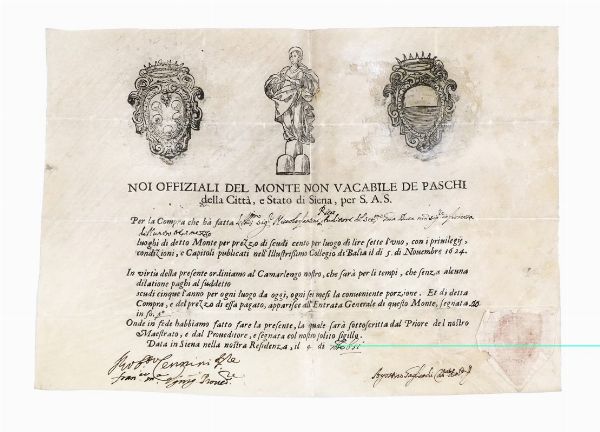 NOI OFFIZIALI DEL MONTE NON VACABILE DE PASCHI
della Città, e Stato di Siena, per S. A. S.
Per la Compra che hà fatta
luoghi di detto Monte per prezzo di scudi cento per luogo di lire sette l'uno, con i privilegij,
condizioni, e Capitoli publicati nell'Illustrissimo Collegio di Balìa il dì 5. di Novembre 1624.
In virtù della presente ordiniamo al Camarlengo nostro, che sarà per li tempi, che senza alcuna
dilatione paghi al suddetto
scudi cinque l'anno per ogni luogo da oggi, ogni sei mesi la conveniente porzione. Et di detta
Compra, e del prezzo di essa pagato, apparisce all'Entrata Generale di questo Monte, segnata
in fo.
Onde in fede habbiamo fatto fare la presente, la quale sarà sottoscritta dal Priore del nostro
Maestrato, e dal Proveditore, e segnata col nostro solito sigillo.
Data in Siena nella nostra Residenza, il dì